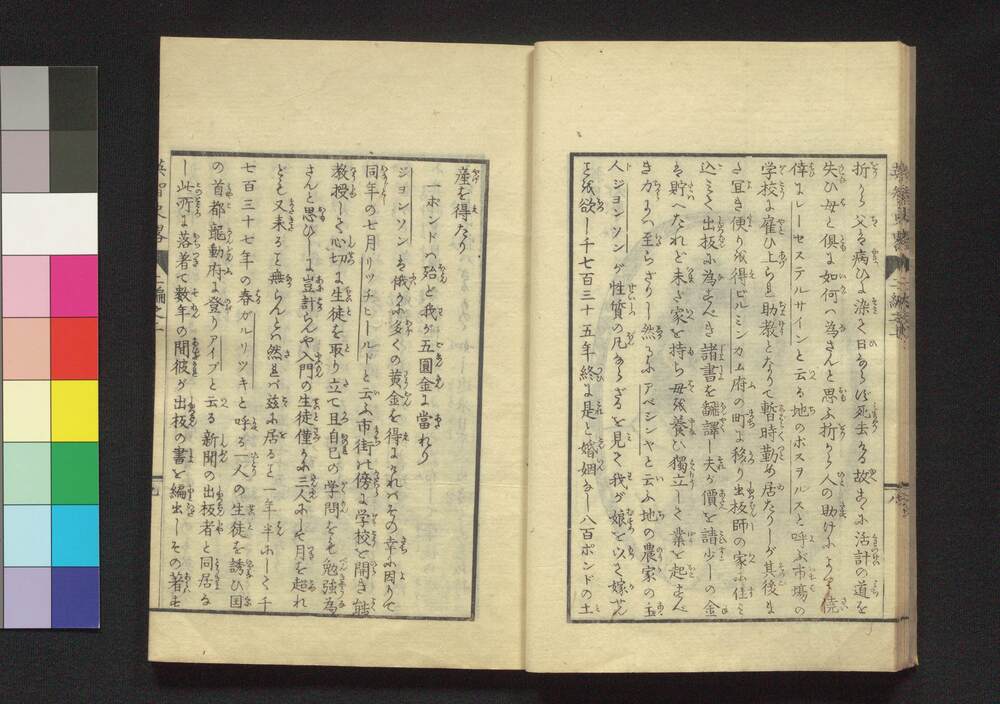 折から父を病ひに染て日あらず死去たる故さらに活計の道を
失ひ母と倶に如何ハ為さんと思ふ折から人の助けにより僥
倖にレーセステルサインと云る地のボスヲルスと呼ぶ市場の
学校に雇ひ上られ助教となりて暫時勤め居たりしが其後に
さ宜き便りを得ビルミンガム府の町に移り出板師の家に住
込ミて出板に為すべき諸書を翻譯し夫が價を請少しの金
を貯へたれど未だ家を持ち母を養ひ獨立して業を起すべ
き力にハ至らざりし然るにアベシンヤと云ふ地の農家の主
人ジョンソンが性質の凡ならざるを見て我が娘を以て嫁せん
とを欲し千七百三十五年終に是と婚姻なし八百ポンドの土
産を得たり
一ポンドハ殆と我が五圓金に當れり
ジョンソンハ俄かに多くの黄金を得たれバその幸に因りて
同年の七月リッチヒールドと云ふ市街の傍に学校を開き能
教授して心切に生徒を取り立て且自己の学問をも勉強為
さんと思ひしに豈計らんや入門の生徒僅かに三人にして月を超れ
ども又来るもの無らんとハ然れバ茲に居ること一年半にして千
七百三十七年の春ガルリッキと呼る一人の生徒を誘ひ国
の首都龍動府に登りアイブと云る新聞の出板者と同居な
し此所に落着て数年の間彼が出板の書を編出しその著せ
英智史畧
二編之二
九
八